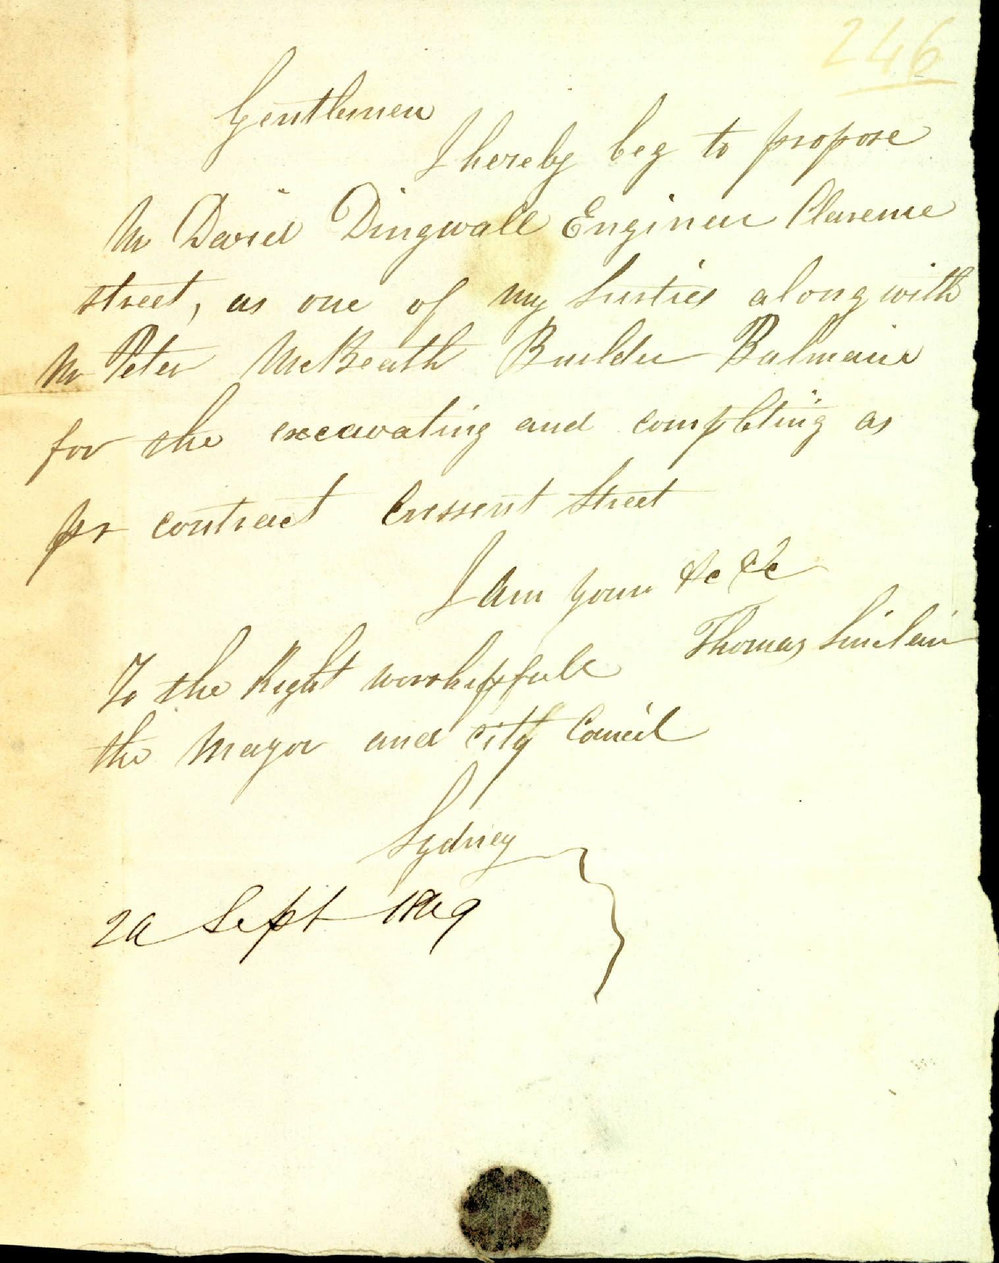 246
Gentlemen
I hereby beg to propose
Mr David Dingwall Engineer Clarence
street, as one of my Surties along with
Mr Peter McBeath Builder Balmain
for the excavating and completing as
pr contract Cressent Street
I am yours &c &c
Thomas Sinclair
To the Right worshipfull
the Mayor and City Council
Sydney
Sept